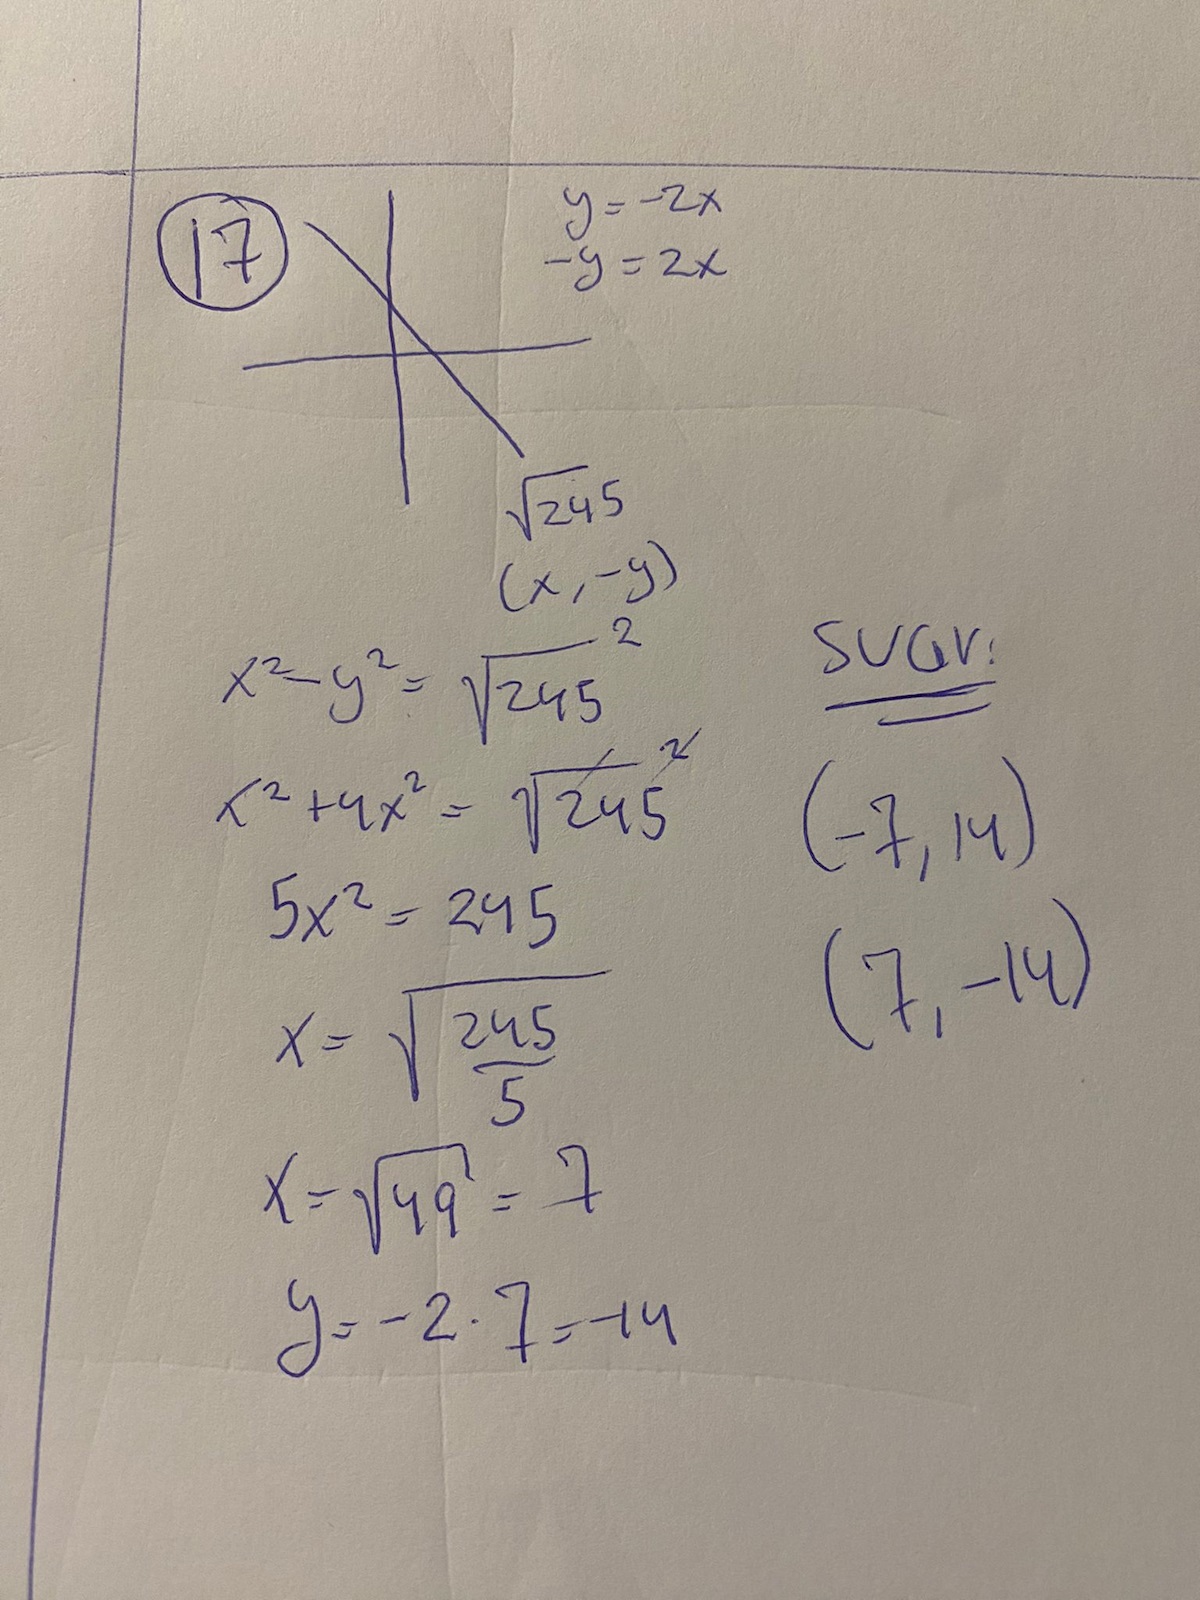 17
y = -2x
-y = 2x
√245
(x, -y)
x² - y² = √245²
x² + 4x² = √245²
5x² = 245
x = √(245/5)
x = √49 = 7
y = -2 · 7 = -14
svar:
(-7, 14)
(7, -14)